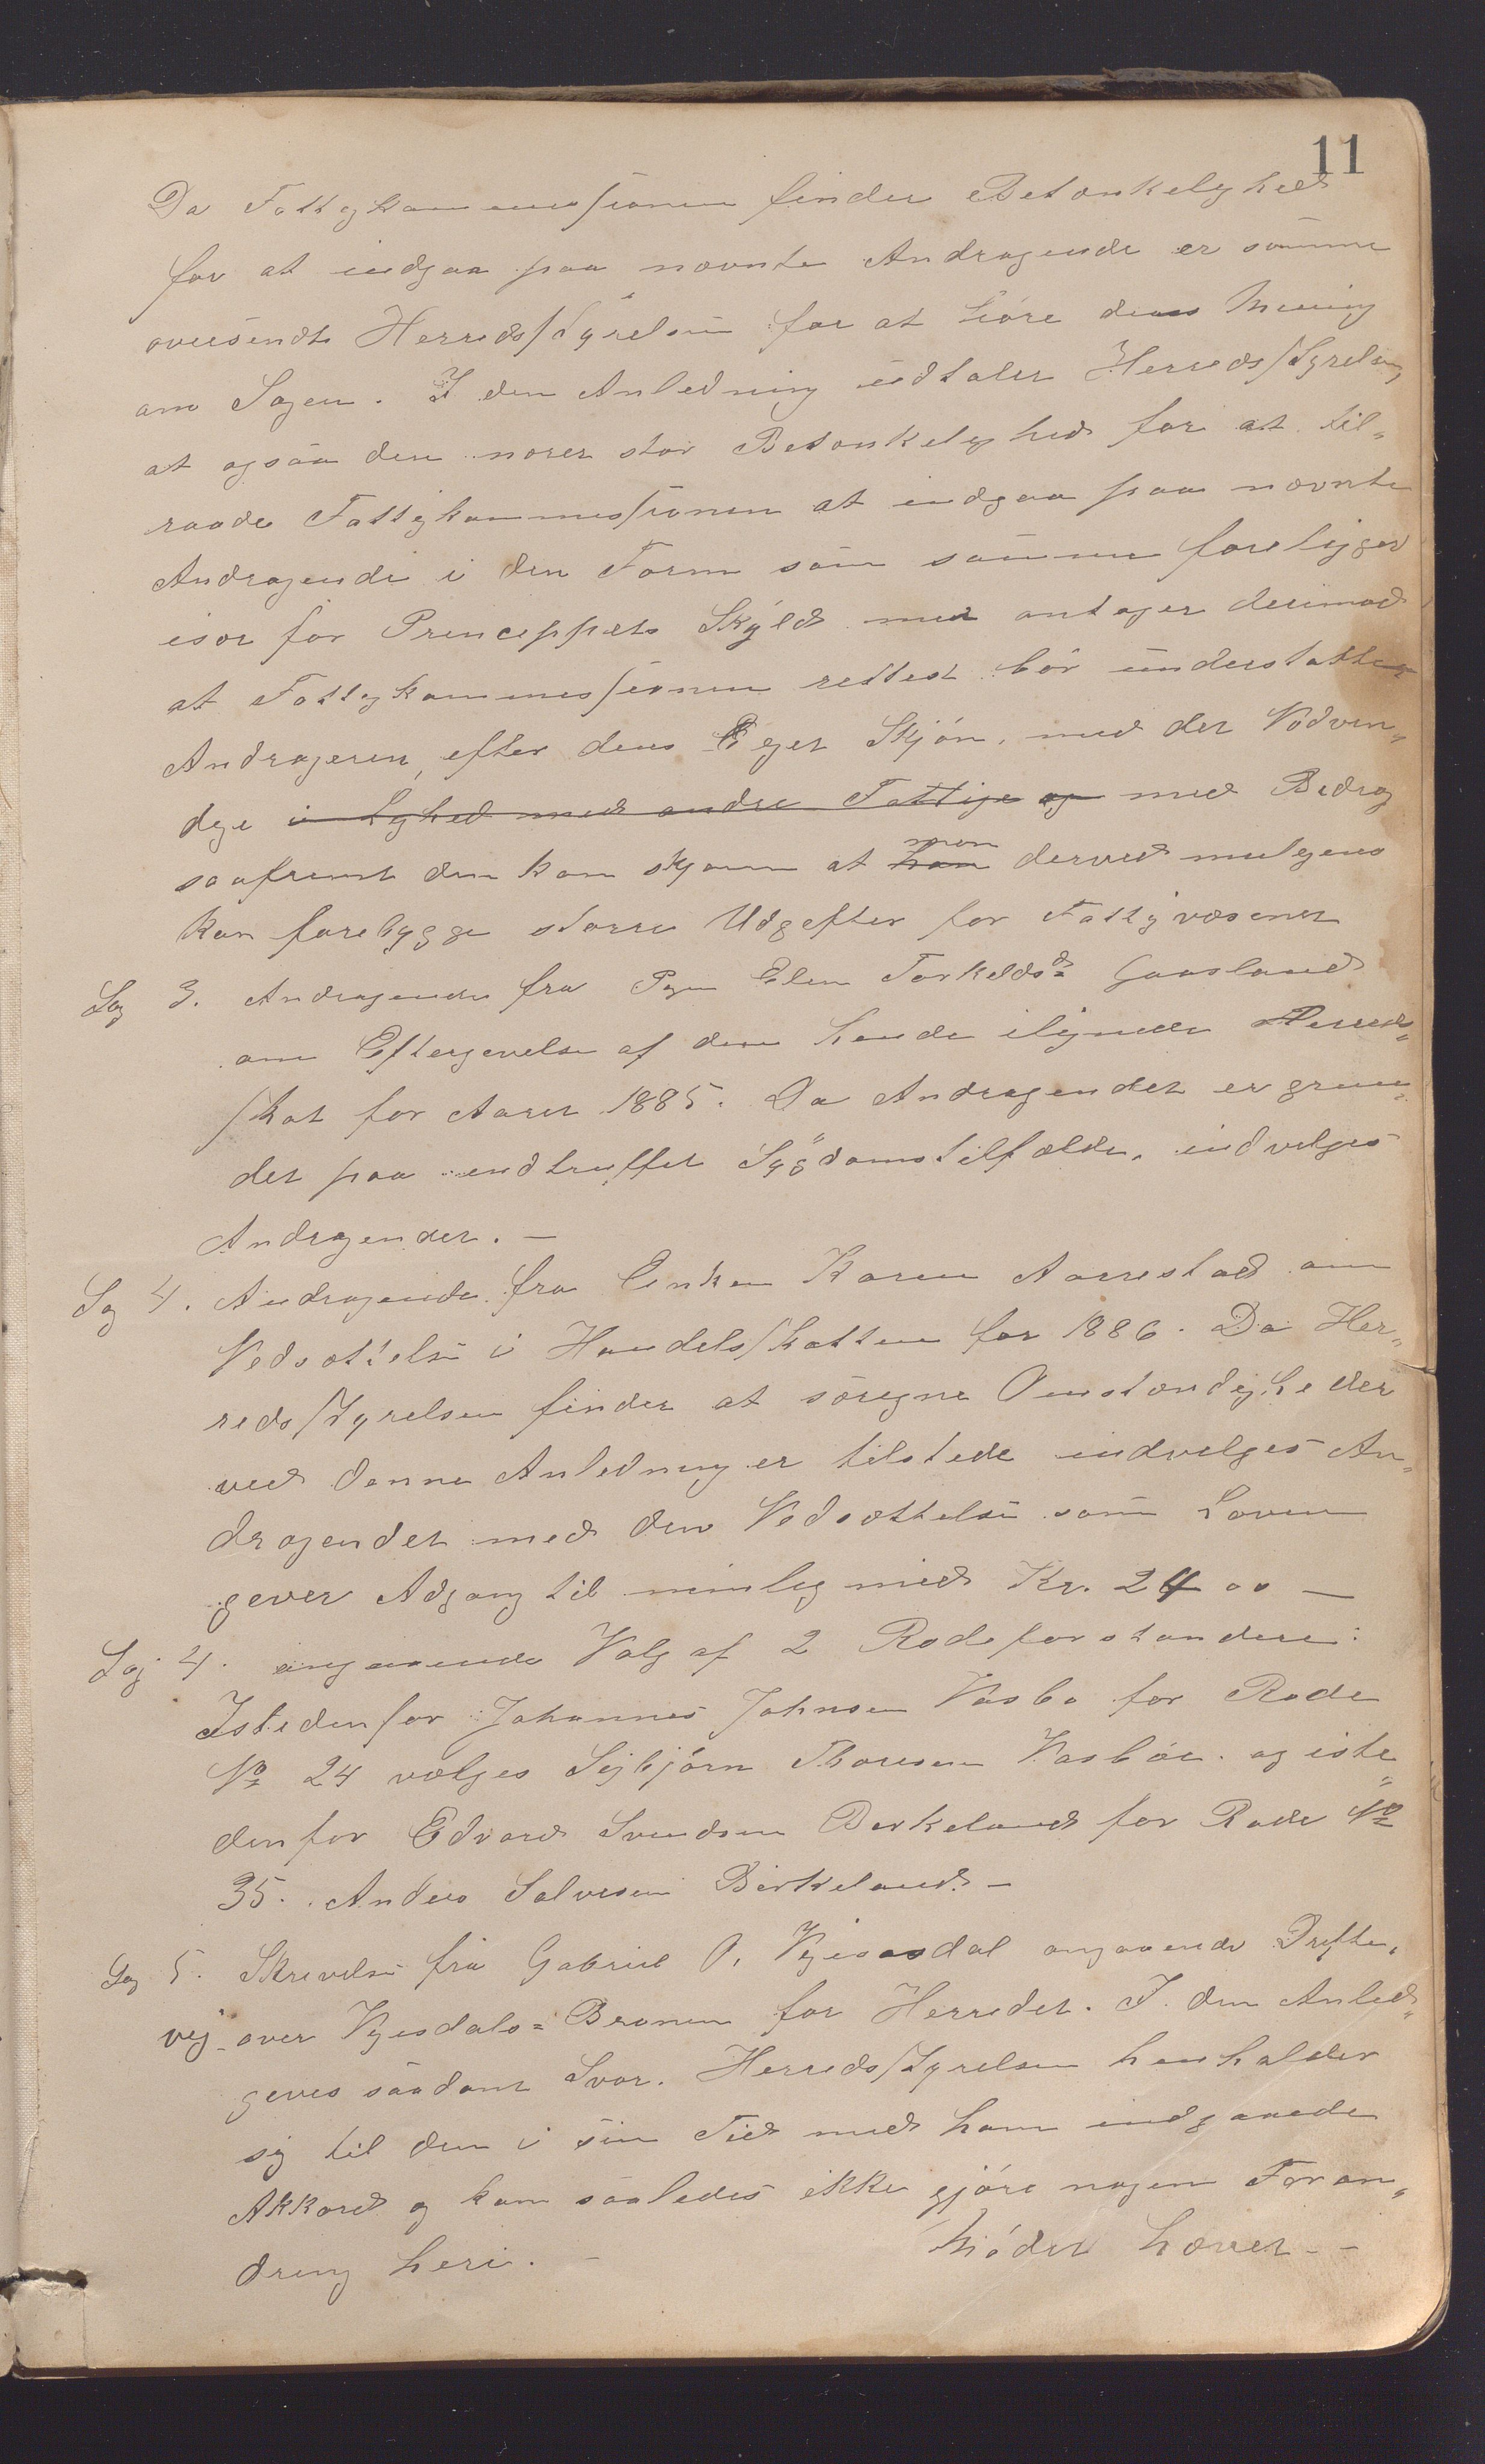 11
Da Fattigkommissionen finder Betænkelighed
for at indgaa paa nævnte Andragende er samme
oversendt Herredsstyrelsen for at høre dens Mening
om Sagen. I den Anledning udtaler Herredsstyrelsen,
at ogsaa den nærer stor Betænkelighed for at til„
raade Fattigkommissionen at indgaa paa nævnte
Andragende i den Form som samme foreligger
især for Princippets Skyld men antager derimod
at Fattigkommissionen rettest bør understøtte
Andrageren, efter dens Eget Skjøn, med det Nødven„
dige i Lighed med andre Fattige og med Bidrag
saafremt den kan skjønne at han man derved muligens
kan forebygge større Udgifter for Fattigvæsenet
Sag 3. Andragende fra Pige Elen Torkeldsd. Gaasland
om Eftergivelse af den hende ilignede Herreds„
skat for Aaret 1885. Da Andragendet er grun„
det paa indtruffet Sygdomstilfælde, indvilges
Andragendet. —
Sag 4. Andragende fra Enken Karen Aarrestad om
Nedsættelse i Handelsskatten for 1886. Da Her„
redsstyrelsen finder at særegne Omstændigheder
ved denne Anledning er tilstede indvilges An„
dragendet med den Nedsættelse som Loven
giver Adgang til nemlig med Kr. 24 00 —
Sag 4. angaaende Valg af 2 Rodeforstandere:
Istedenfor Johannes Johnsen Vasbø for Rode
No 24 vælges Sigbjørn Thoresen Vasbøe. og iste„
denfor Edvard Svendsen Berkeland for Rode No
35. Anders Salvesen Birkeland. —
Sag 5. Skrivelse fra Gabriel O. Vigesdal angaaende Drifte„
vej over Vigesdals= Broen for Herredet. I den Anled„
gives saadant Svar. Herredsstyrelsen henholder
sig til den i sin Tid med ham indgaaede
Akkord og kan saaledes ikke gjøre nogen Foran„
dring heri. — Mødet hævet. —